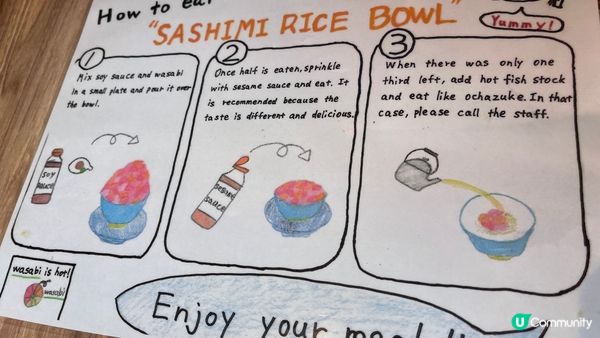 How to eat
"SASHIMI RICE BOWL"
Yummy!
1
Mix soy sauce and wasabi
in a small plate and pour it over
the bowl.
SOY
SAUCE
2
Once half is eaten, sprinkle
with sesame sauce and eat. It
is recommended because the
taste is different and delicious.
sesame
sauce
3
When there was only one
third left, add hot fish stock
and eat like ochazuke. In that
case, please call the staff.
wasabi is hot!
wasabi
Enjoy your meal!!
U Community